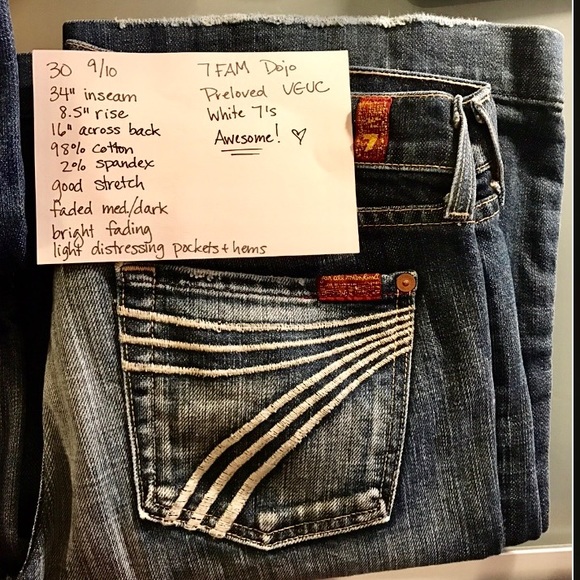 30 9/10
34" inseam
8.5" rise
16" across back
98% cotton
2% spandex
good stretch
faded med/dark
bright fading
light distressing pockets + hems
7 FAM Dojo
Preloved VGUC
White 7's
Awesome! ♡
7
for all mankind